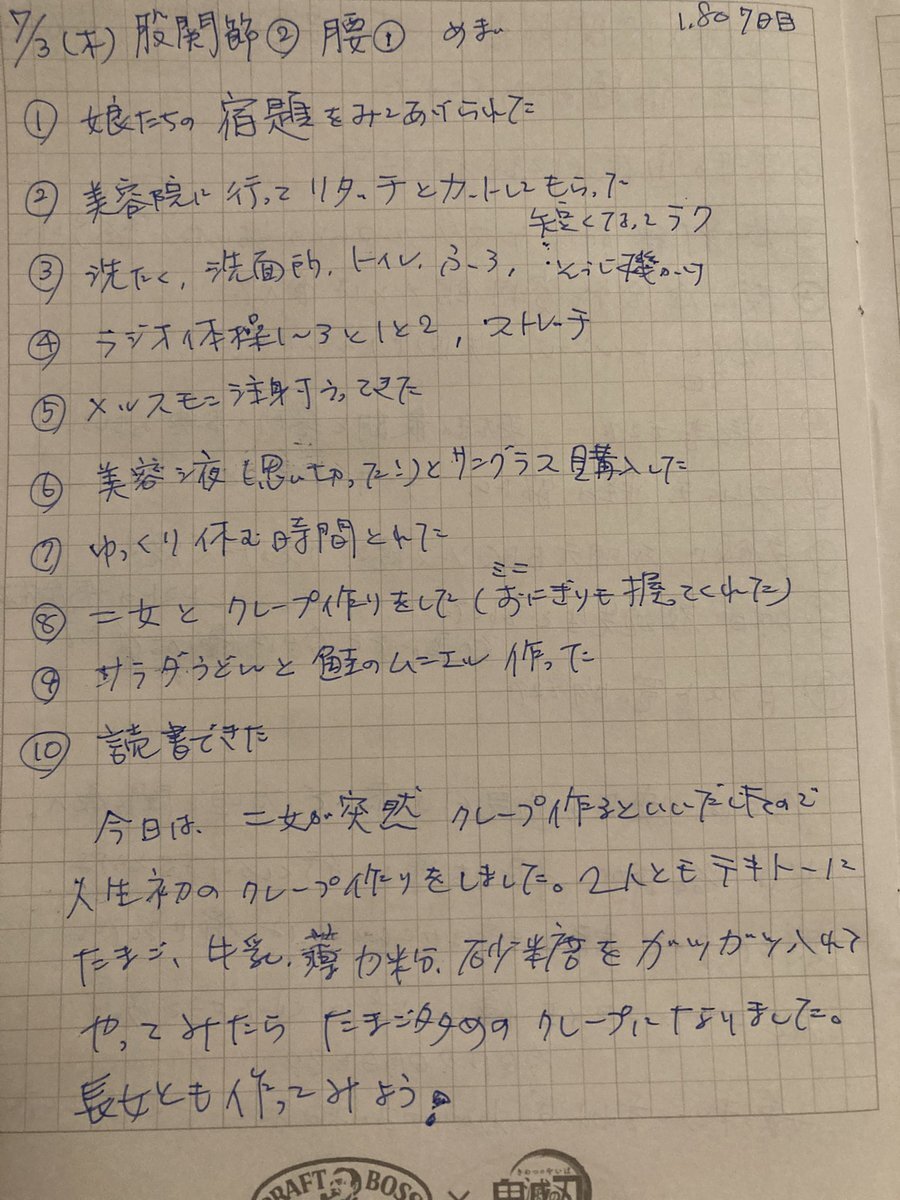 7/3(木) 股関節② 腰① めまい 1.80 7日目
① 娘たちの宿題をみてあげられた
② 美容院に行ってリタッチとカットしてもらった
短くなってラク
③ 洗たく、洗面所、トイレ、ふろ、そうじ機かけ
④ ラジオ体操1〜3と1と2, ストレーチ
⑤ メルスモン注射打ってきた
⑥ 美容液(思い切った!)とサングラス購入した
⑦ ゆっくり休む時間とれた
⑧ 二女とクレープ作りをした(ミニおにぎりも握ってくれた)
⑨ サラダうどんと鮭のムニエル作った
⑩ 読書できた
今日は、二女が突然クレープ作るといいだしたので
人生初のクレープ作りをしました。2人ともテキトーに
たまご、牛乳、薄力粉、砂糖をガツガツ入れて
やってみたら たまご多めのクレープになりました。
長女とも作ってみよう!
CRAFT BOSS × きめつのやいば 鬼滅の刃